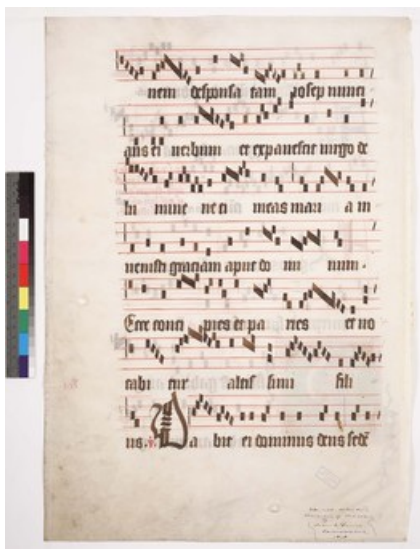 nem desponsa tam iosep nunci
ans ei verbum et expavescit virgo de
lu mine ne ti meas mari a in
venisti graciam apud do mi num.
Ecce conci pies et pa ries et vo
cabi tur altis simi fili
us. Da bit ei dominus deus sedē